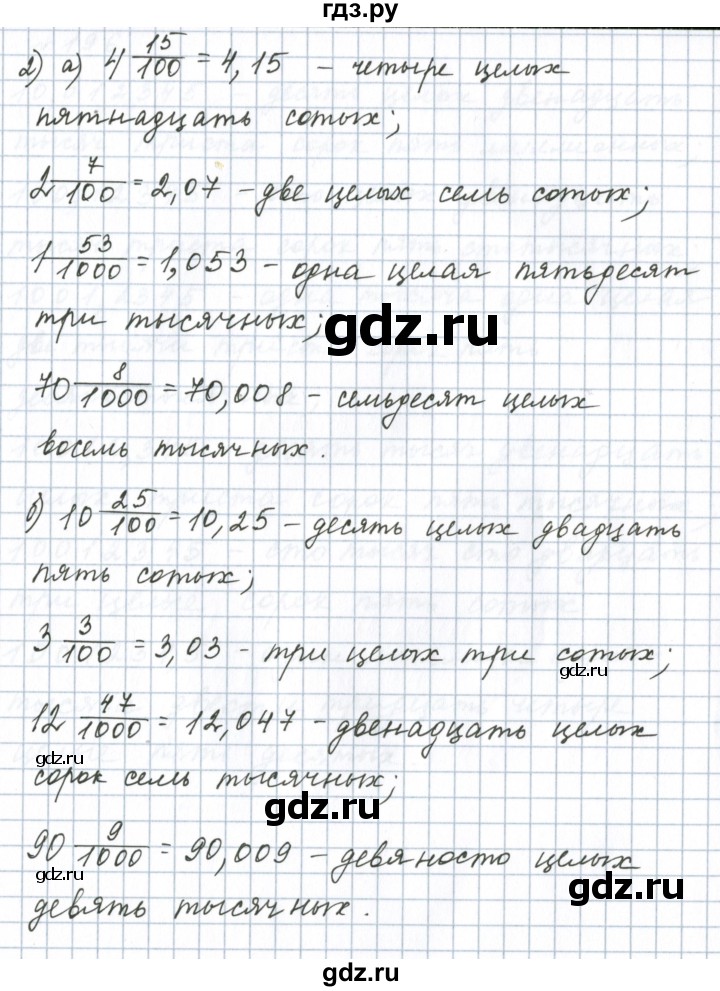 гдз.ру
2) а) 4 15/100 = 4,15 – четыре целых
пятнадцать сотых;
2 7/100 = 2,07 – две целых семь сотых;
1 53/1000 = 1,053 – одна целая пятьдесят
три тысячных;
gdz.ru
70 8/1000 = 70,008 – семьдесят целых
восемь тысячных.
б) 10 25/100 = 10,25 – десять целых двадцать
пять сотых;
3 3/100 = 3,03 – три целых три сотых;
gdz.ru
12 47/1000 = 12,047 – двенадцать целых
gdz.ru
сорок семь тысячных;
gdz.ru
90 9/1000 = 90,009 – девяносто целых
gdz.ru
gdz.ru
девять тысячных.
gdz.ru